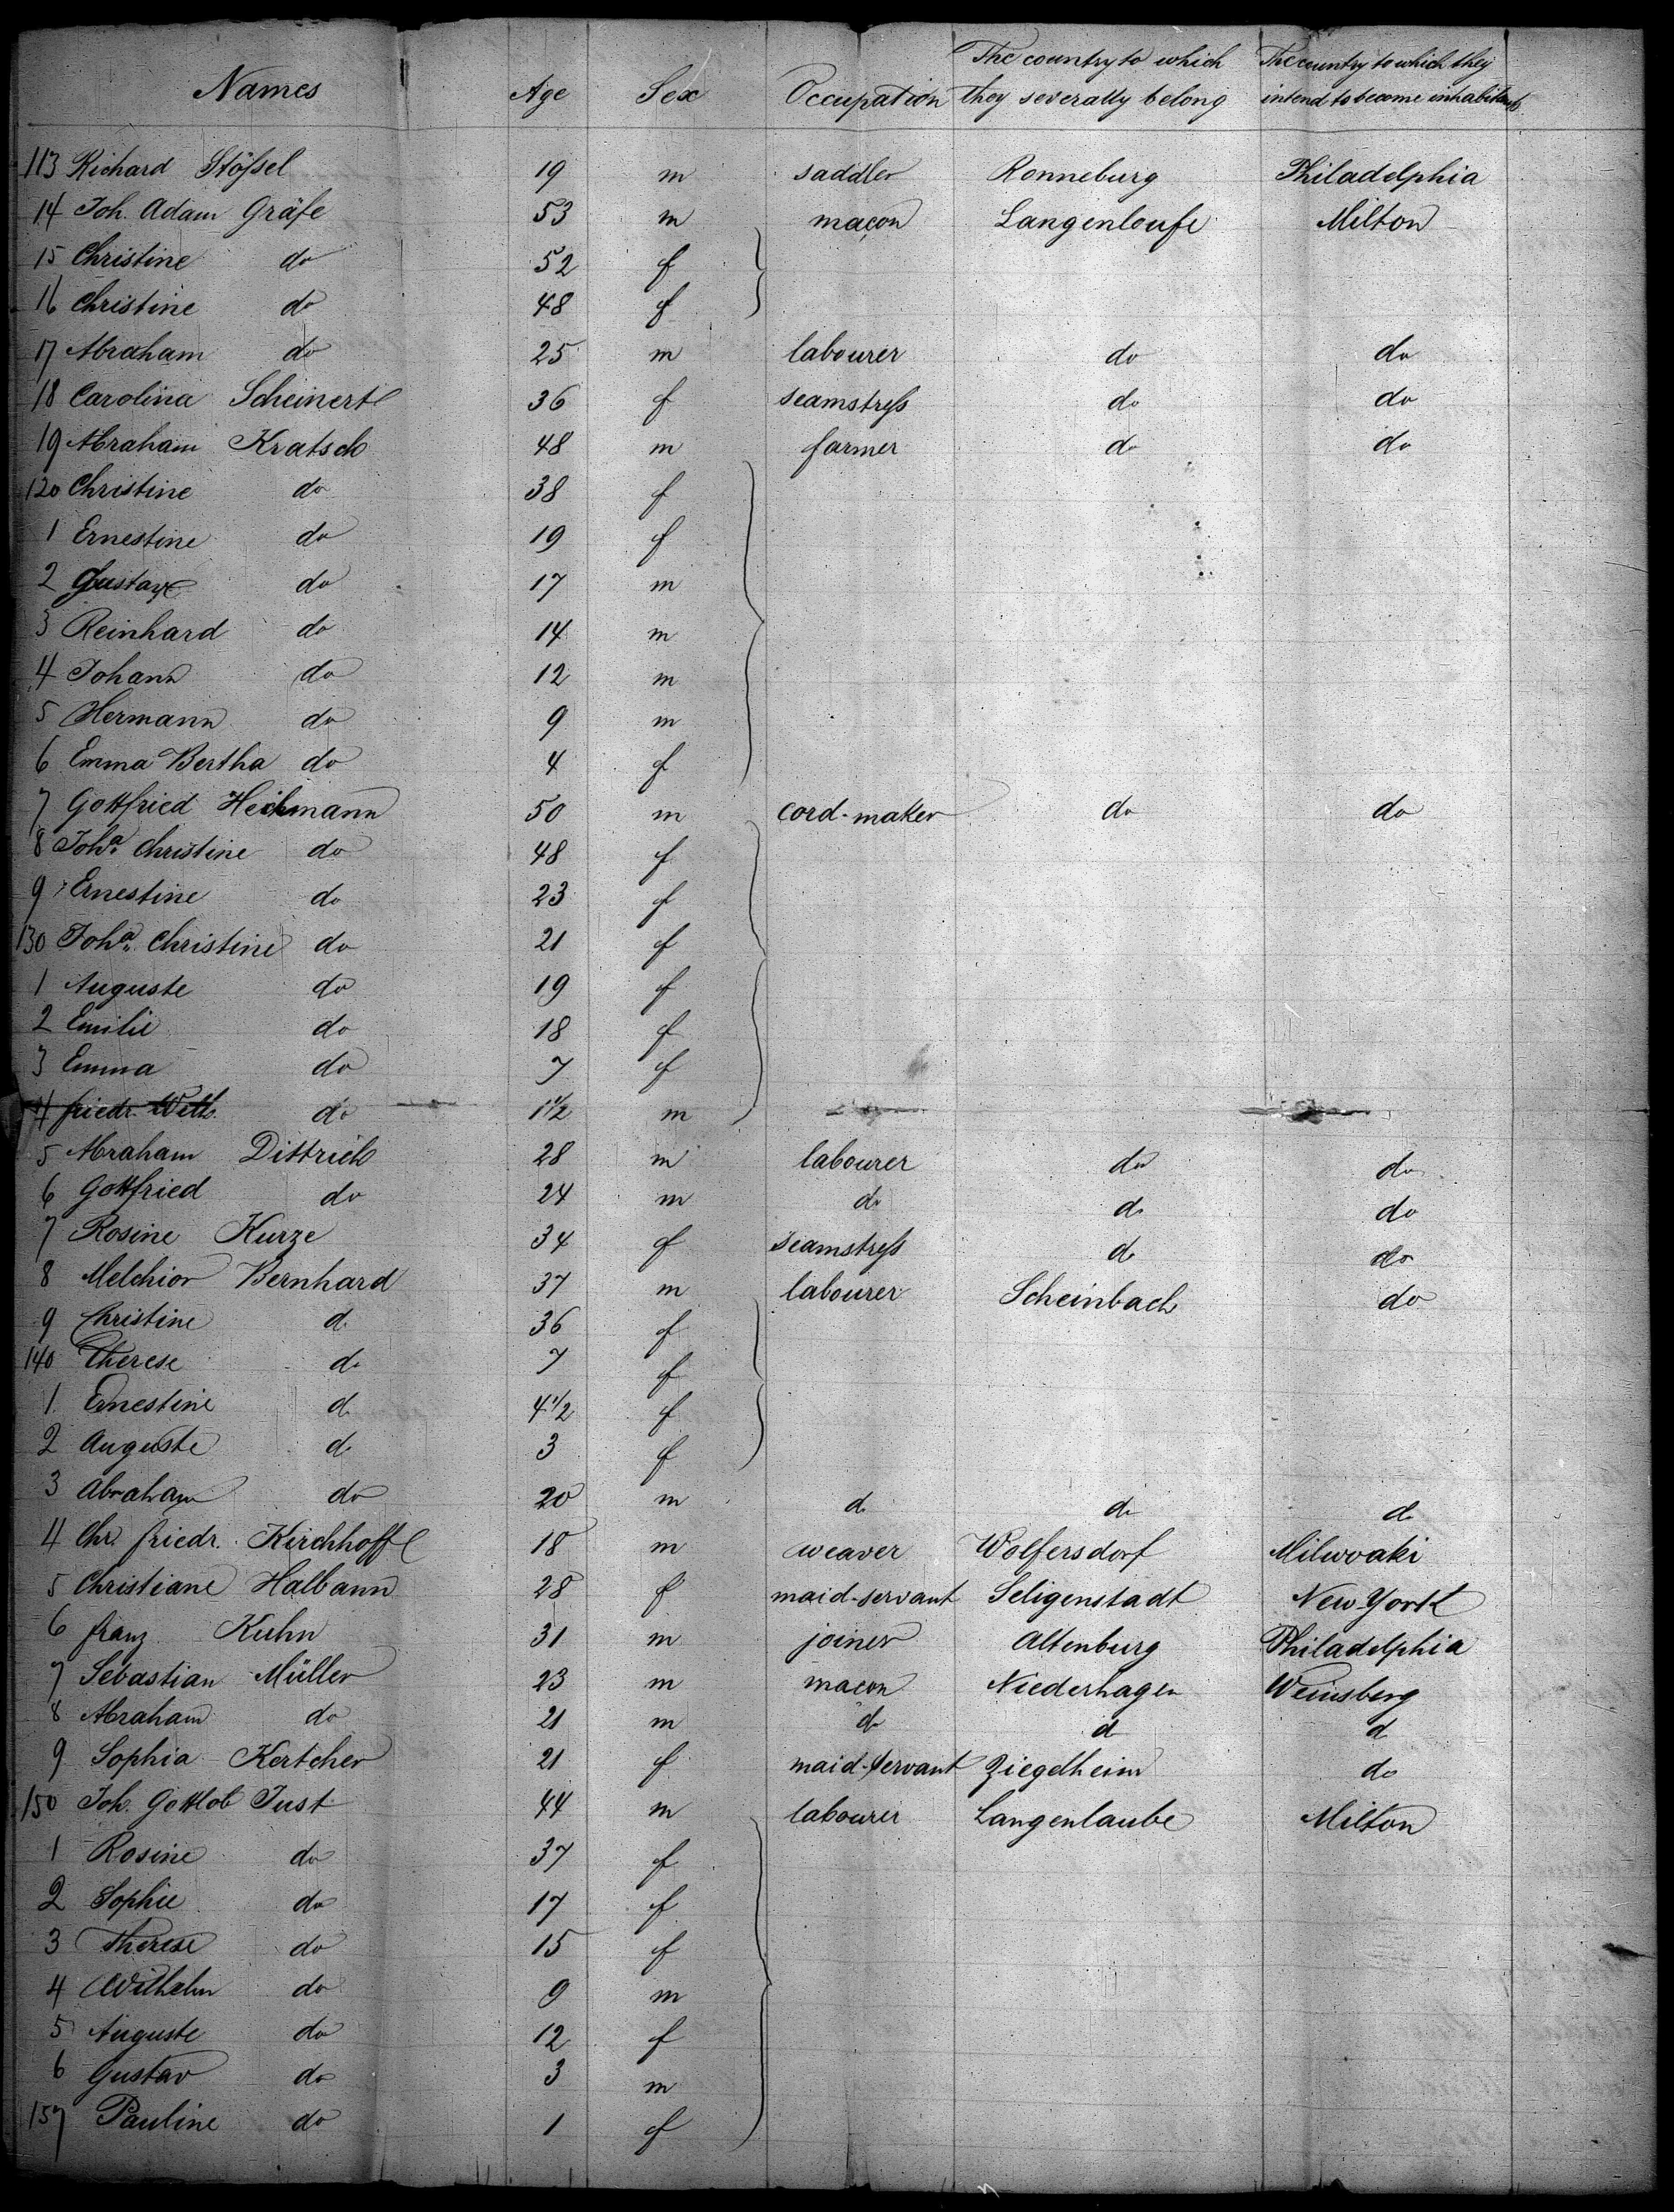 Names Age Sex Occupation The country to which they severally belong The country to which they intend to become inhabitants.
113 Richard Stößel 19 m saddler Ronneburg Philadelphia
14 Joh. Adam Gräfe 53 m maçon Langenloufe Milton
15 Christine do 52 f
16 Christine do 48 f
17 Abraham do 25 m labourer do do
18 Carolina Scheinert 36 f seamstreß do do
19 Abraham Kratsch 48 m farmer do do
120 Christine do 38 f
1 Ernestine do 19 f
2 Gustav do 17 m
3 Reinhard do 14 m
4 Johann do 12 m
5 Hermann do 9 m
6 Emma Bertha do 4 f
7 Gottfried Heichmann 50 m cord-maker do do
8 Joha. Christine do 48 f
9 Ernestine do 23 f
130 Joha. Christine do 21 f
1 Auguste do 19 f
2 Emilie do 18 f
3 Emma do 7 f
4 friedr. Wilh. do 1 1/2 m
5 Abraham Dittrich 28 m labourer do do
6 Gottfried do 24 m do do do
7 Rosine Kurze 34 f seamstreß do do
8 Melchior Bernhard 37 m labourer Scheinbach do
9 Christine d. 36 f
140 Therese d. 7 f
1 Ernestine d. 4 1/2 f
2 Auguste d. 3 f
3 Abraham do 20 m d. d. d.
4 Chr. friedr. Kirchhoff 18 m weaver Wolfersdorf Milwoaki
5 Christiane Halbann 28 f maid-servant Seligenstadt New York
6 franz Kuhn 31 m joiner Altenburg Philadelphia
7 Sebastian Müller 23 m macon Niederhagen Weinsberg
8 Abraham do 21 m do d d
9 Sophia Kertcher 21 f maid-servant Ziegelheim do
150 Joh. Gottlob Just 44 m labourer Langenlaube Milton
1 Rosine do 37 f
2 Sophie do 17 f
3 Therese do 15 f
4 Wilhelm do 9 m
5 Auguste do 12 f
6 Gustav do 3 m
157 Pauline do 1 f